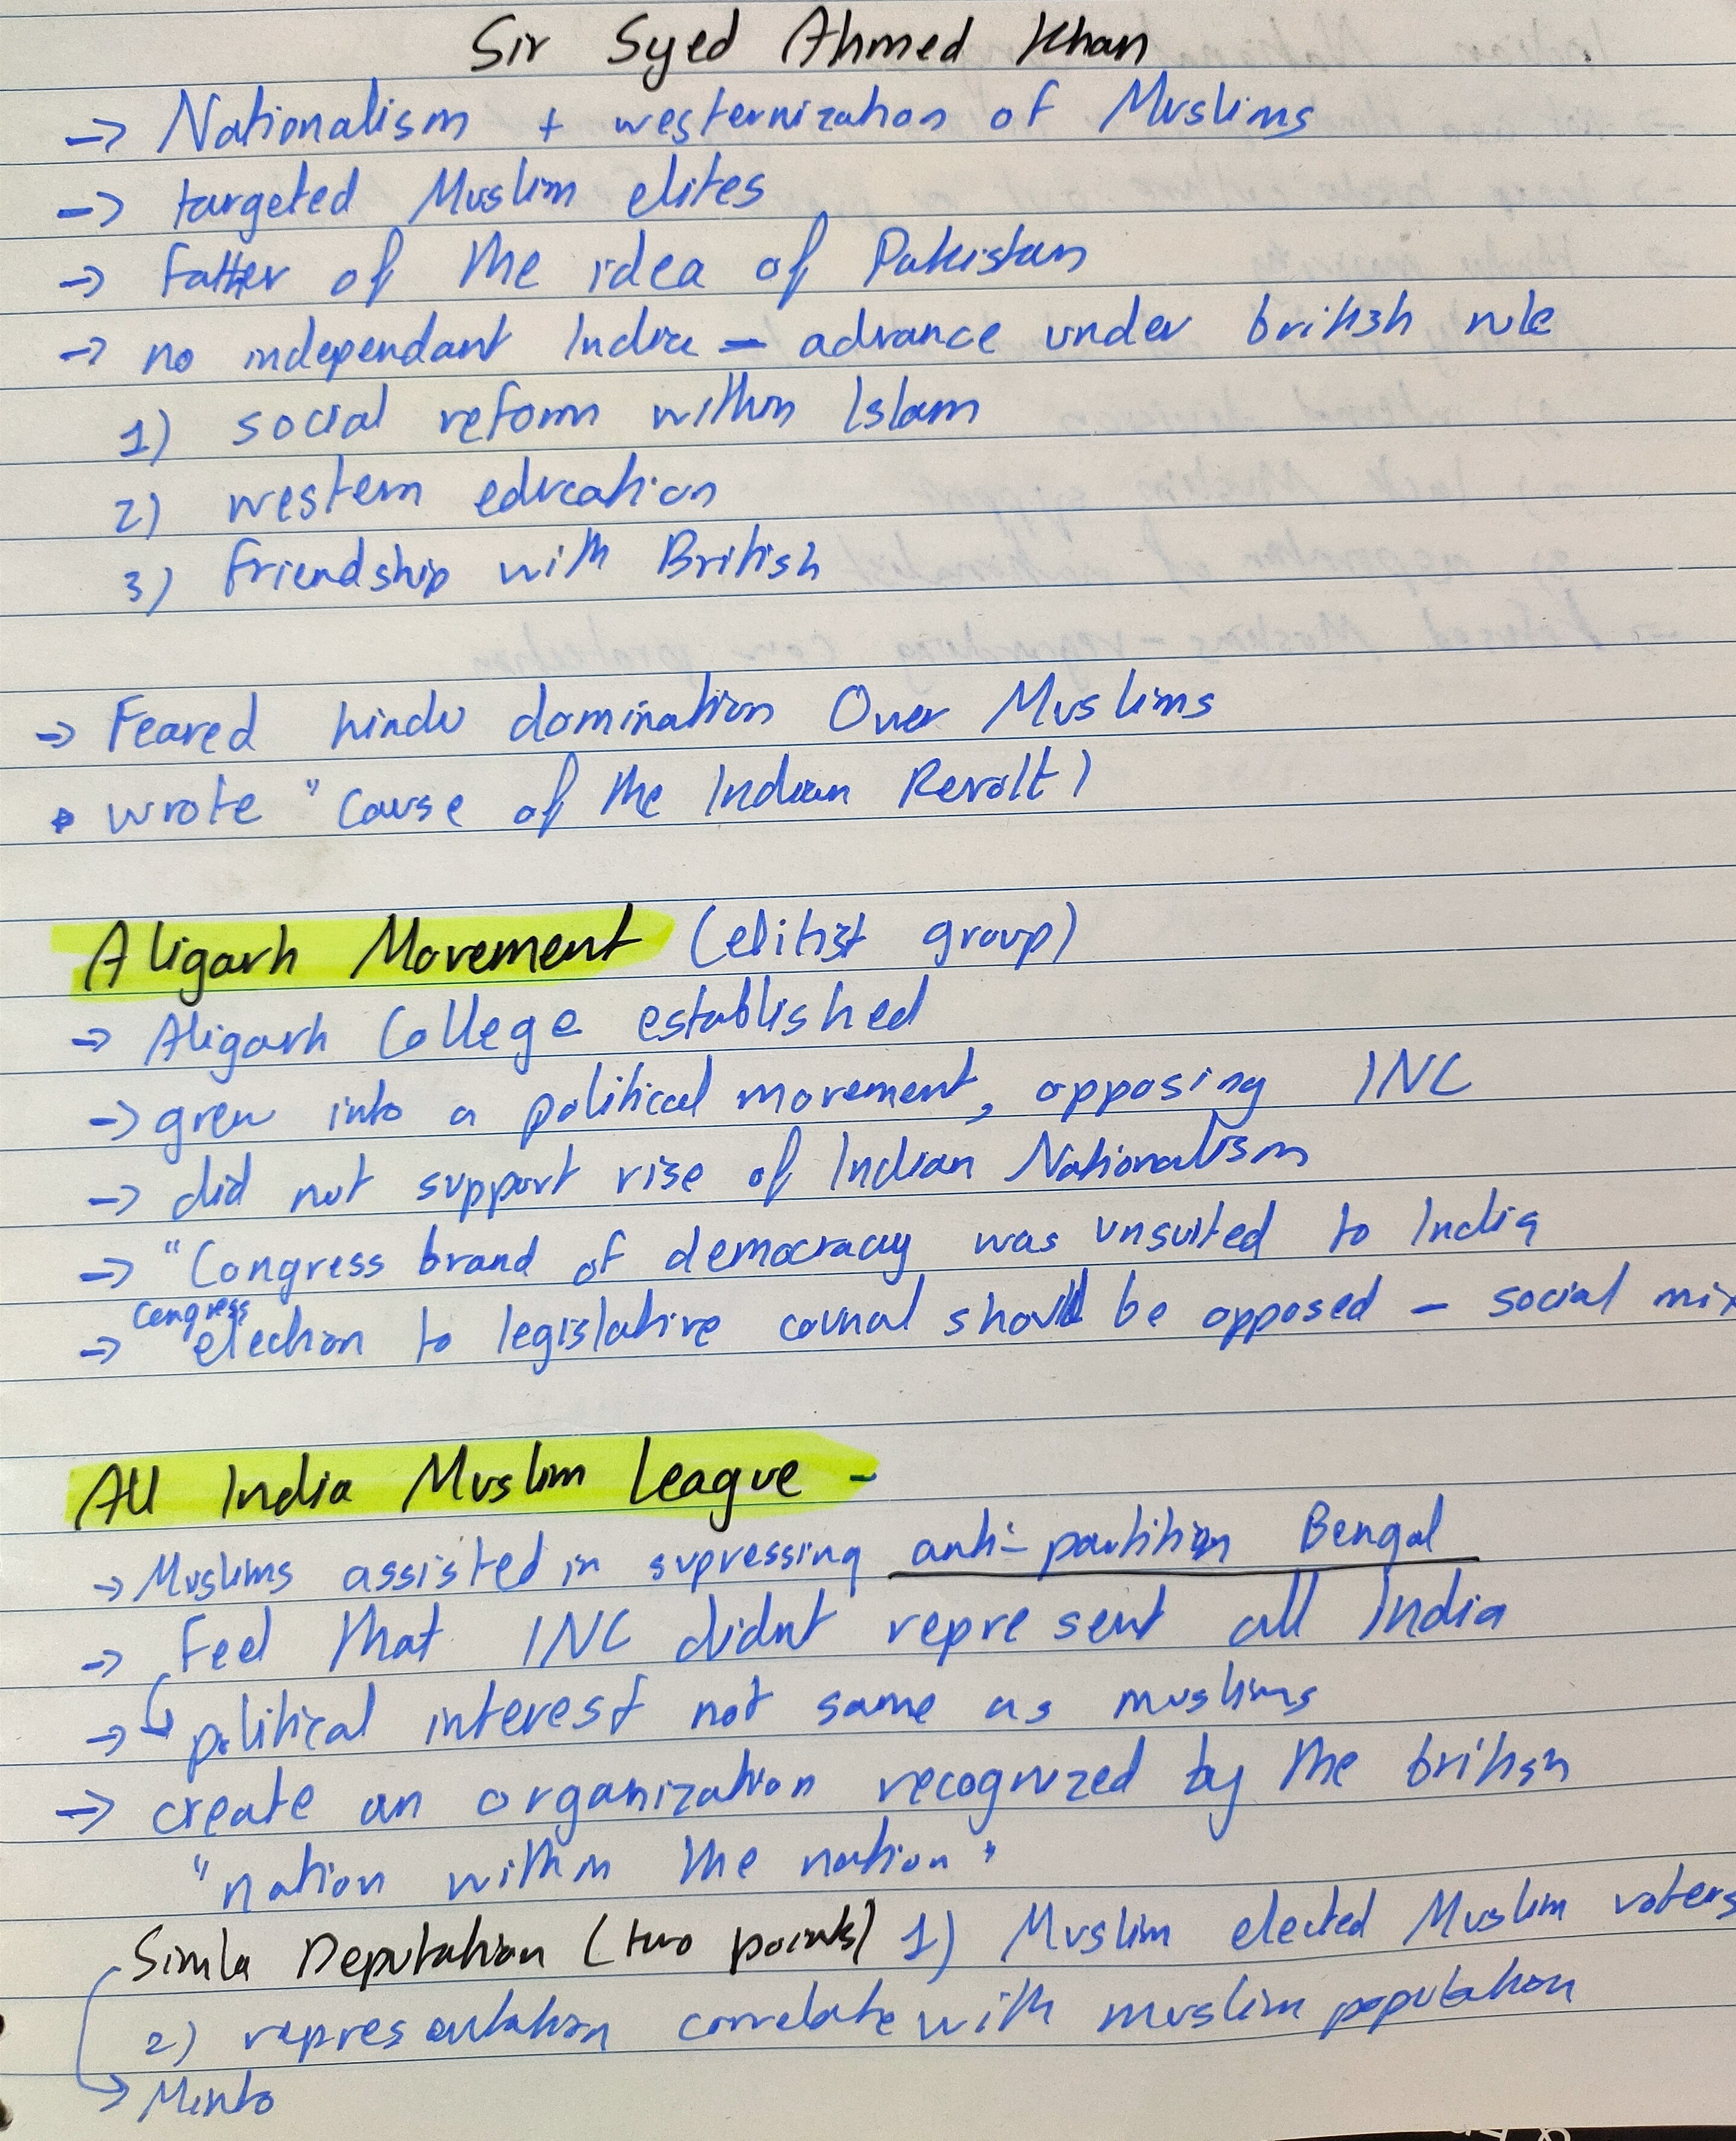 Sir Syed Ahmed Khan
→ Nationalism + westernization of Muslims
→ targeted Muslim elites
→ father of the idea of Pakistan
→ no independant India - advance under british rule
1) social reform within Islam
2) western education
3) friendship with British
→ Feared hindu domination Over Muslims
• wrote "Cause of the Indian Revolt)
Aligarh Movement (elitist group)
→ Aligarh College established
→ grew into a political movement, opposing INC
→ did not support rise of Indian Nationalism
→ "Congress brand of democracy was unsuited to India
Congress
→ election to legislative council should be opposed - social mix
All India Muslim League -
→ Muslims assisted in supressing anti-partition Bengal
→ Feel that INC didnt represent all India
→ ↳ political interest not same as muslims
→ create an organization recognized by the british
"nation within the nation"
Simla Deputation (two points) 1) Muslim elected Muslim voters
2) representation correlate with muslim population
→ Minto